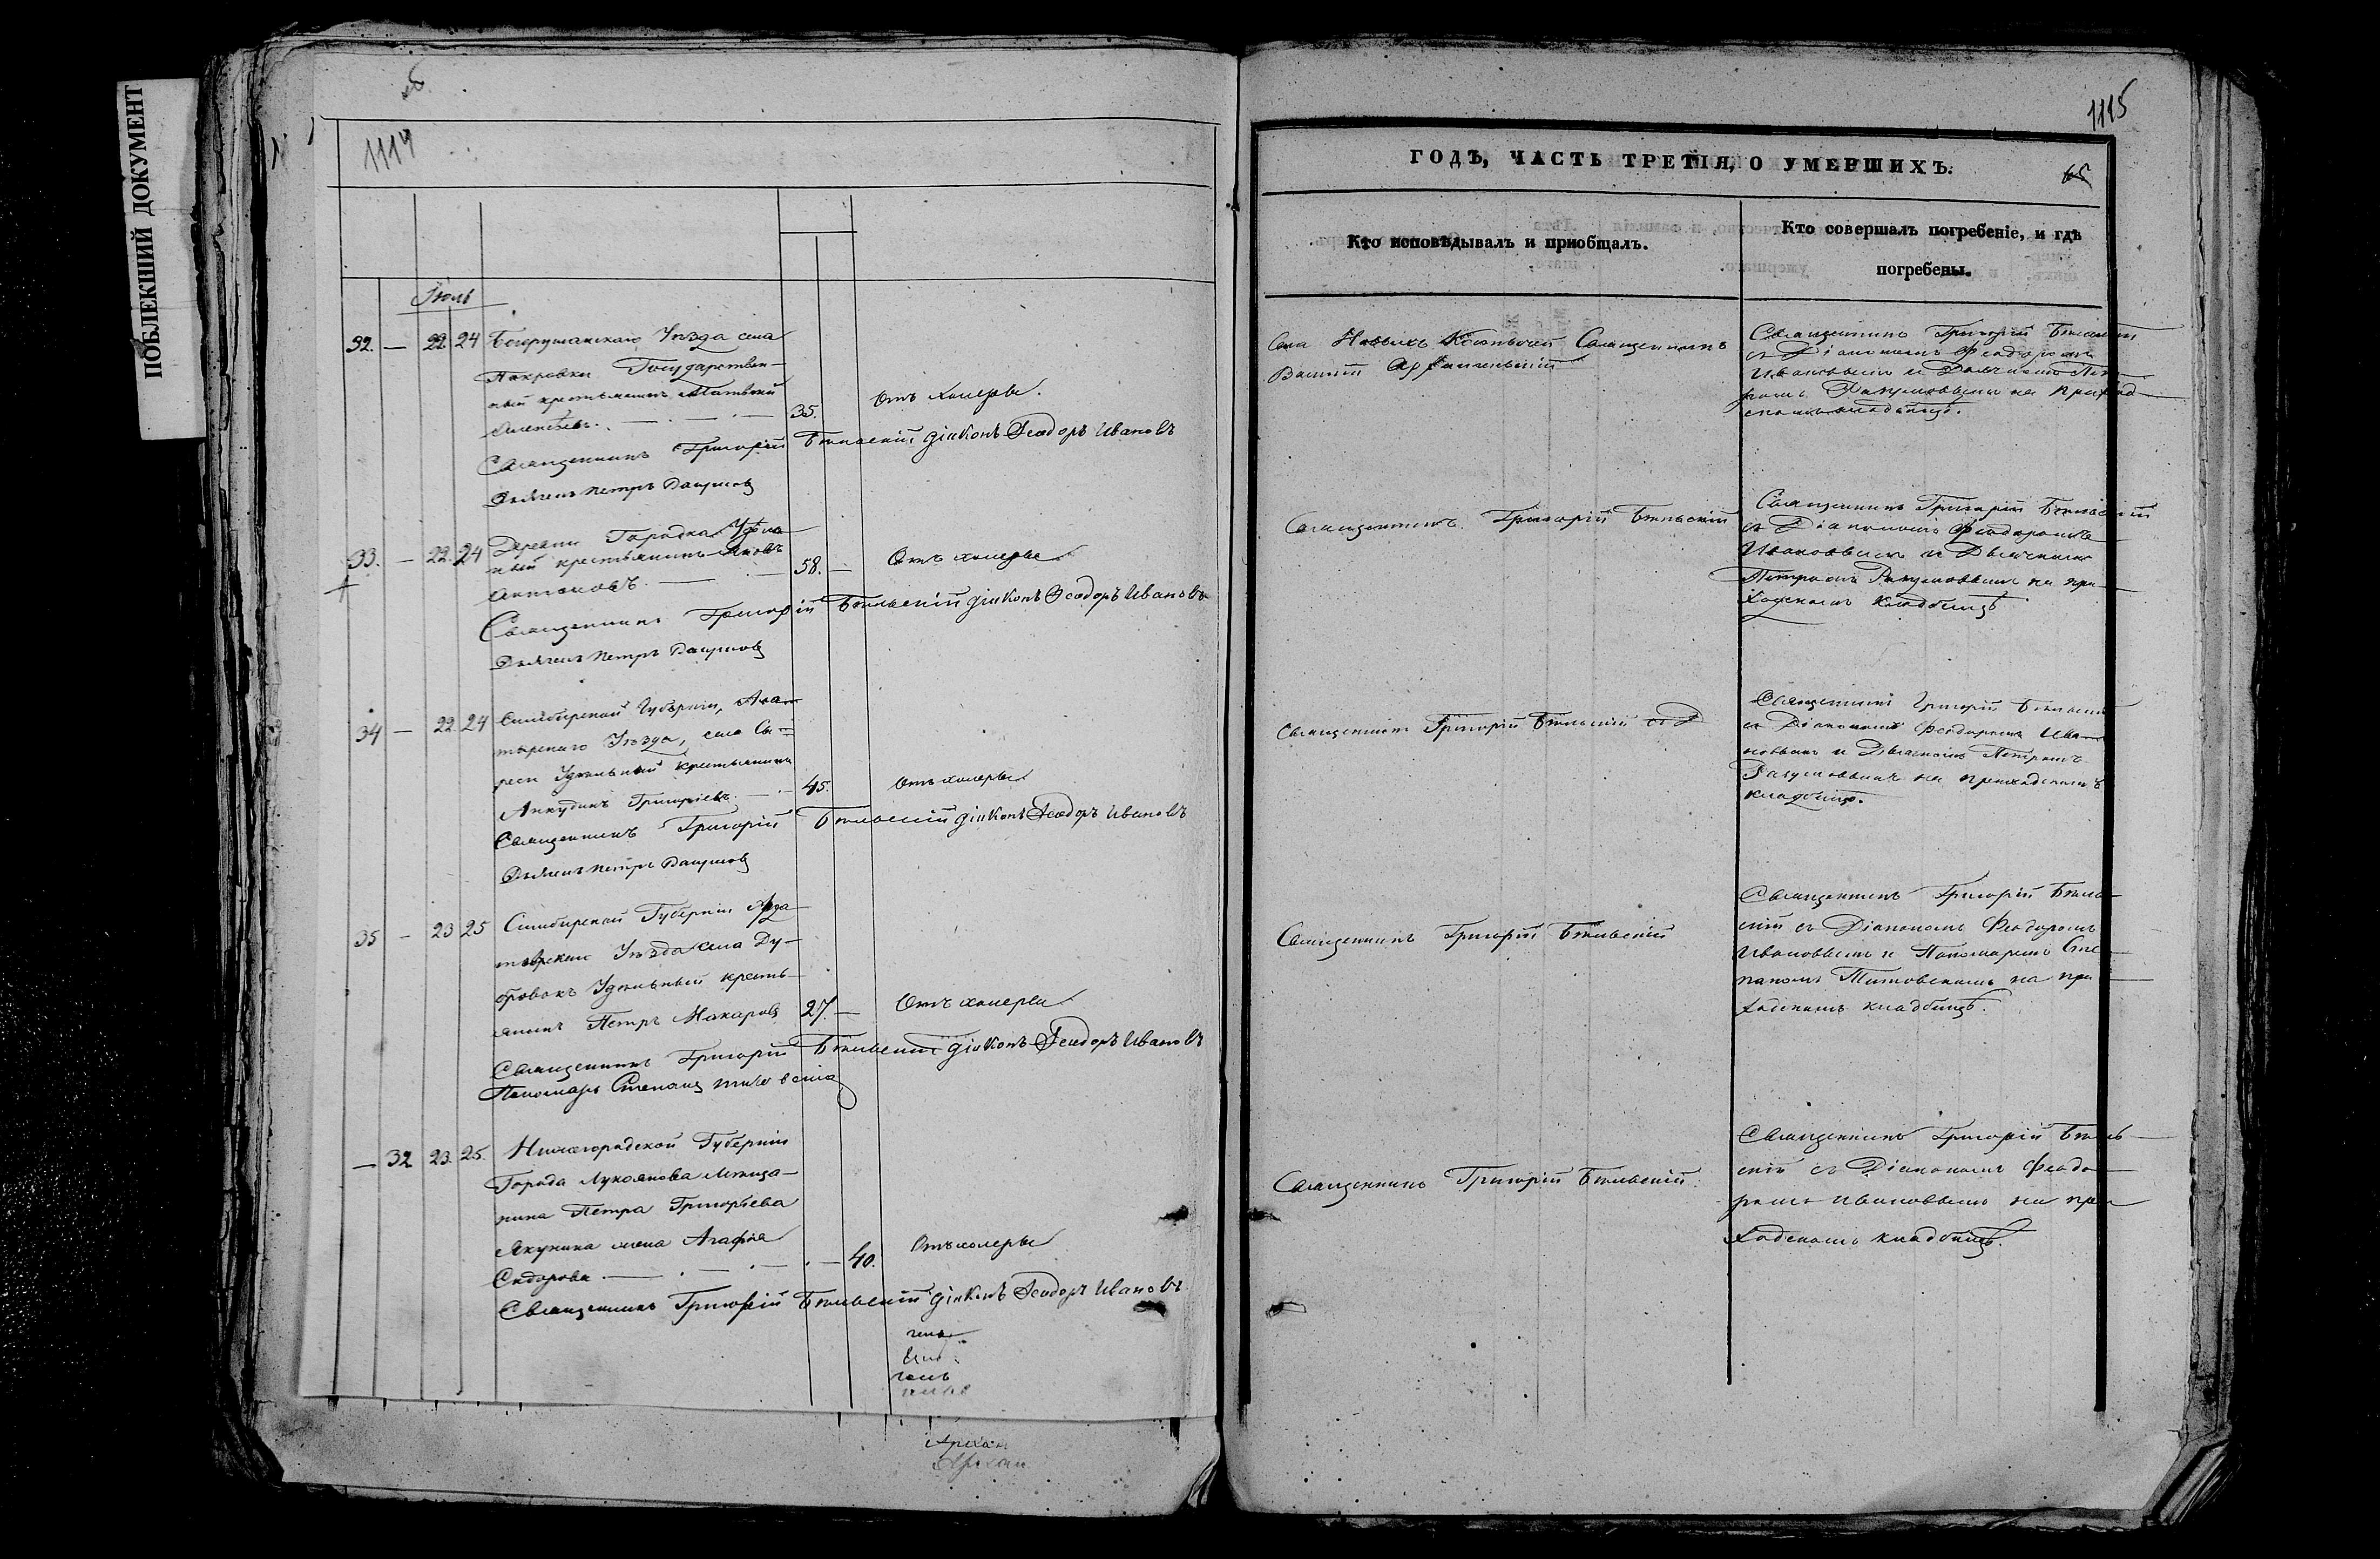 ПОБЛЕКШИЙ ДОКУМЕНТ
1114
Іюль
32. — 22. 24 Бугурусланскаго Уѣзда села
Покровки Государствен-
ный крестьянинъ Матвей
Алексѣевъ. 35. Отъ холеры.
Священникъ Григорій Бѣльскій діаконъ Ѳеодоръ Ивановъ
Дьячекъ Петръ Разумовъ
33. — 22. 24 Деревни Городка Удѣль-
ный крестьянинъ Яковъ
Антоновъ. 58. — Отъ холеры
Священникъ Григорій Бѣльскій діаконъ Ѳеодоръ Ивановъ
Дьячекъ Петръ Разумовъ
34 — 22. 24 Симбирской Губерніи, Ала-
тырскаго Уѣзда, села Сы-
реси Удѣльный крестьянинъ
Анкудинъ Григорьевъ. 45. Отъ холеры
Священникъ Григорій Бѣльскій діаконъ Ѳеодоръ Ивановъ
Дьячекъ Петръ Разумовъ
35 — 23 25 Симбирской Губерніи Арда-
товскаго Уѣзда села Ду-
бровокъ Удѣльный кресть-
янинъ Петръ Макаровъ 27. — Отъ холеры
Священникъ Григорій Бѣльскій діаконъ Ѳеодоръ Ивановъ
Пономарь Степанъ
— 32 23. 25. Нижегородской Губерніи
Города Лукоянова Мѣща-
нина Петра Григорьева
Якунина жена Агафія
Сидорова. 40. Отъ холеры
Священникъ Григорій Бѣльскій діаконъ Ѳеодоръ Ивановъ
1115
ГОДЪ, ЧАСТЬ ТРЕТІЯ, О УМЕРШИХЪ.
65
Кто исповѣдывалъ и пріобщалъ.
Кто совершалъ погребеніе, и гдѣ
погребены.
Села Новыхъ Священникъ
Василій
Священникъ Григорій Бѣльскій
съ Діакономъ Ѳеодоромъ
Ивановымъ и Дьячкомъ Пет-
ромъ Разумовымъ на приход-
скомъ кладбищѣ.
Священникъ Григорій Бѣльскій
Священникъ Григорій Бѣльскій
съ Діакономъ Ѳеодоромъ
Ивановымъ и Дьячкомъ
Петромъ Разумовымъ на при-
ходскомъ кладбищѣ
Священникъ Григорій Бѣльскій съ Д
Священникъ Григорій Бѣльскій
съ Діакономъ Ѳеодоромъ Ива-
новымъ и Дьячкомъ Петромъ
Разумовымъ на приходскомъ
кладбищѣ.
Священникъ Григорій Бѣльскій
Священникъ Григорій Бѣль-
скій съ Діакономъ Ѳеодоромъ
Ивановымъ и Пономаремъ Сте-
паномъ на при-
ходскомъ кладбищѣ.
Священникъ Григорій Бѣльскій.
Священникъ Григорій Бѣль-
скій съ Діакономъ Ѳеодо-
ромъ Ивановымъ на при-
ходскомъ кладбищѣ.